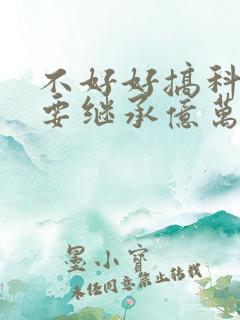 不好好搞科
要继承億萬
墨小寶
未任同意禁止转载